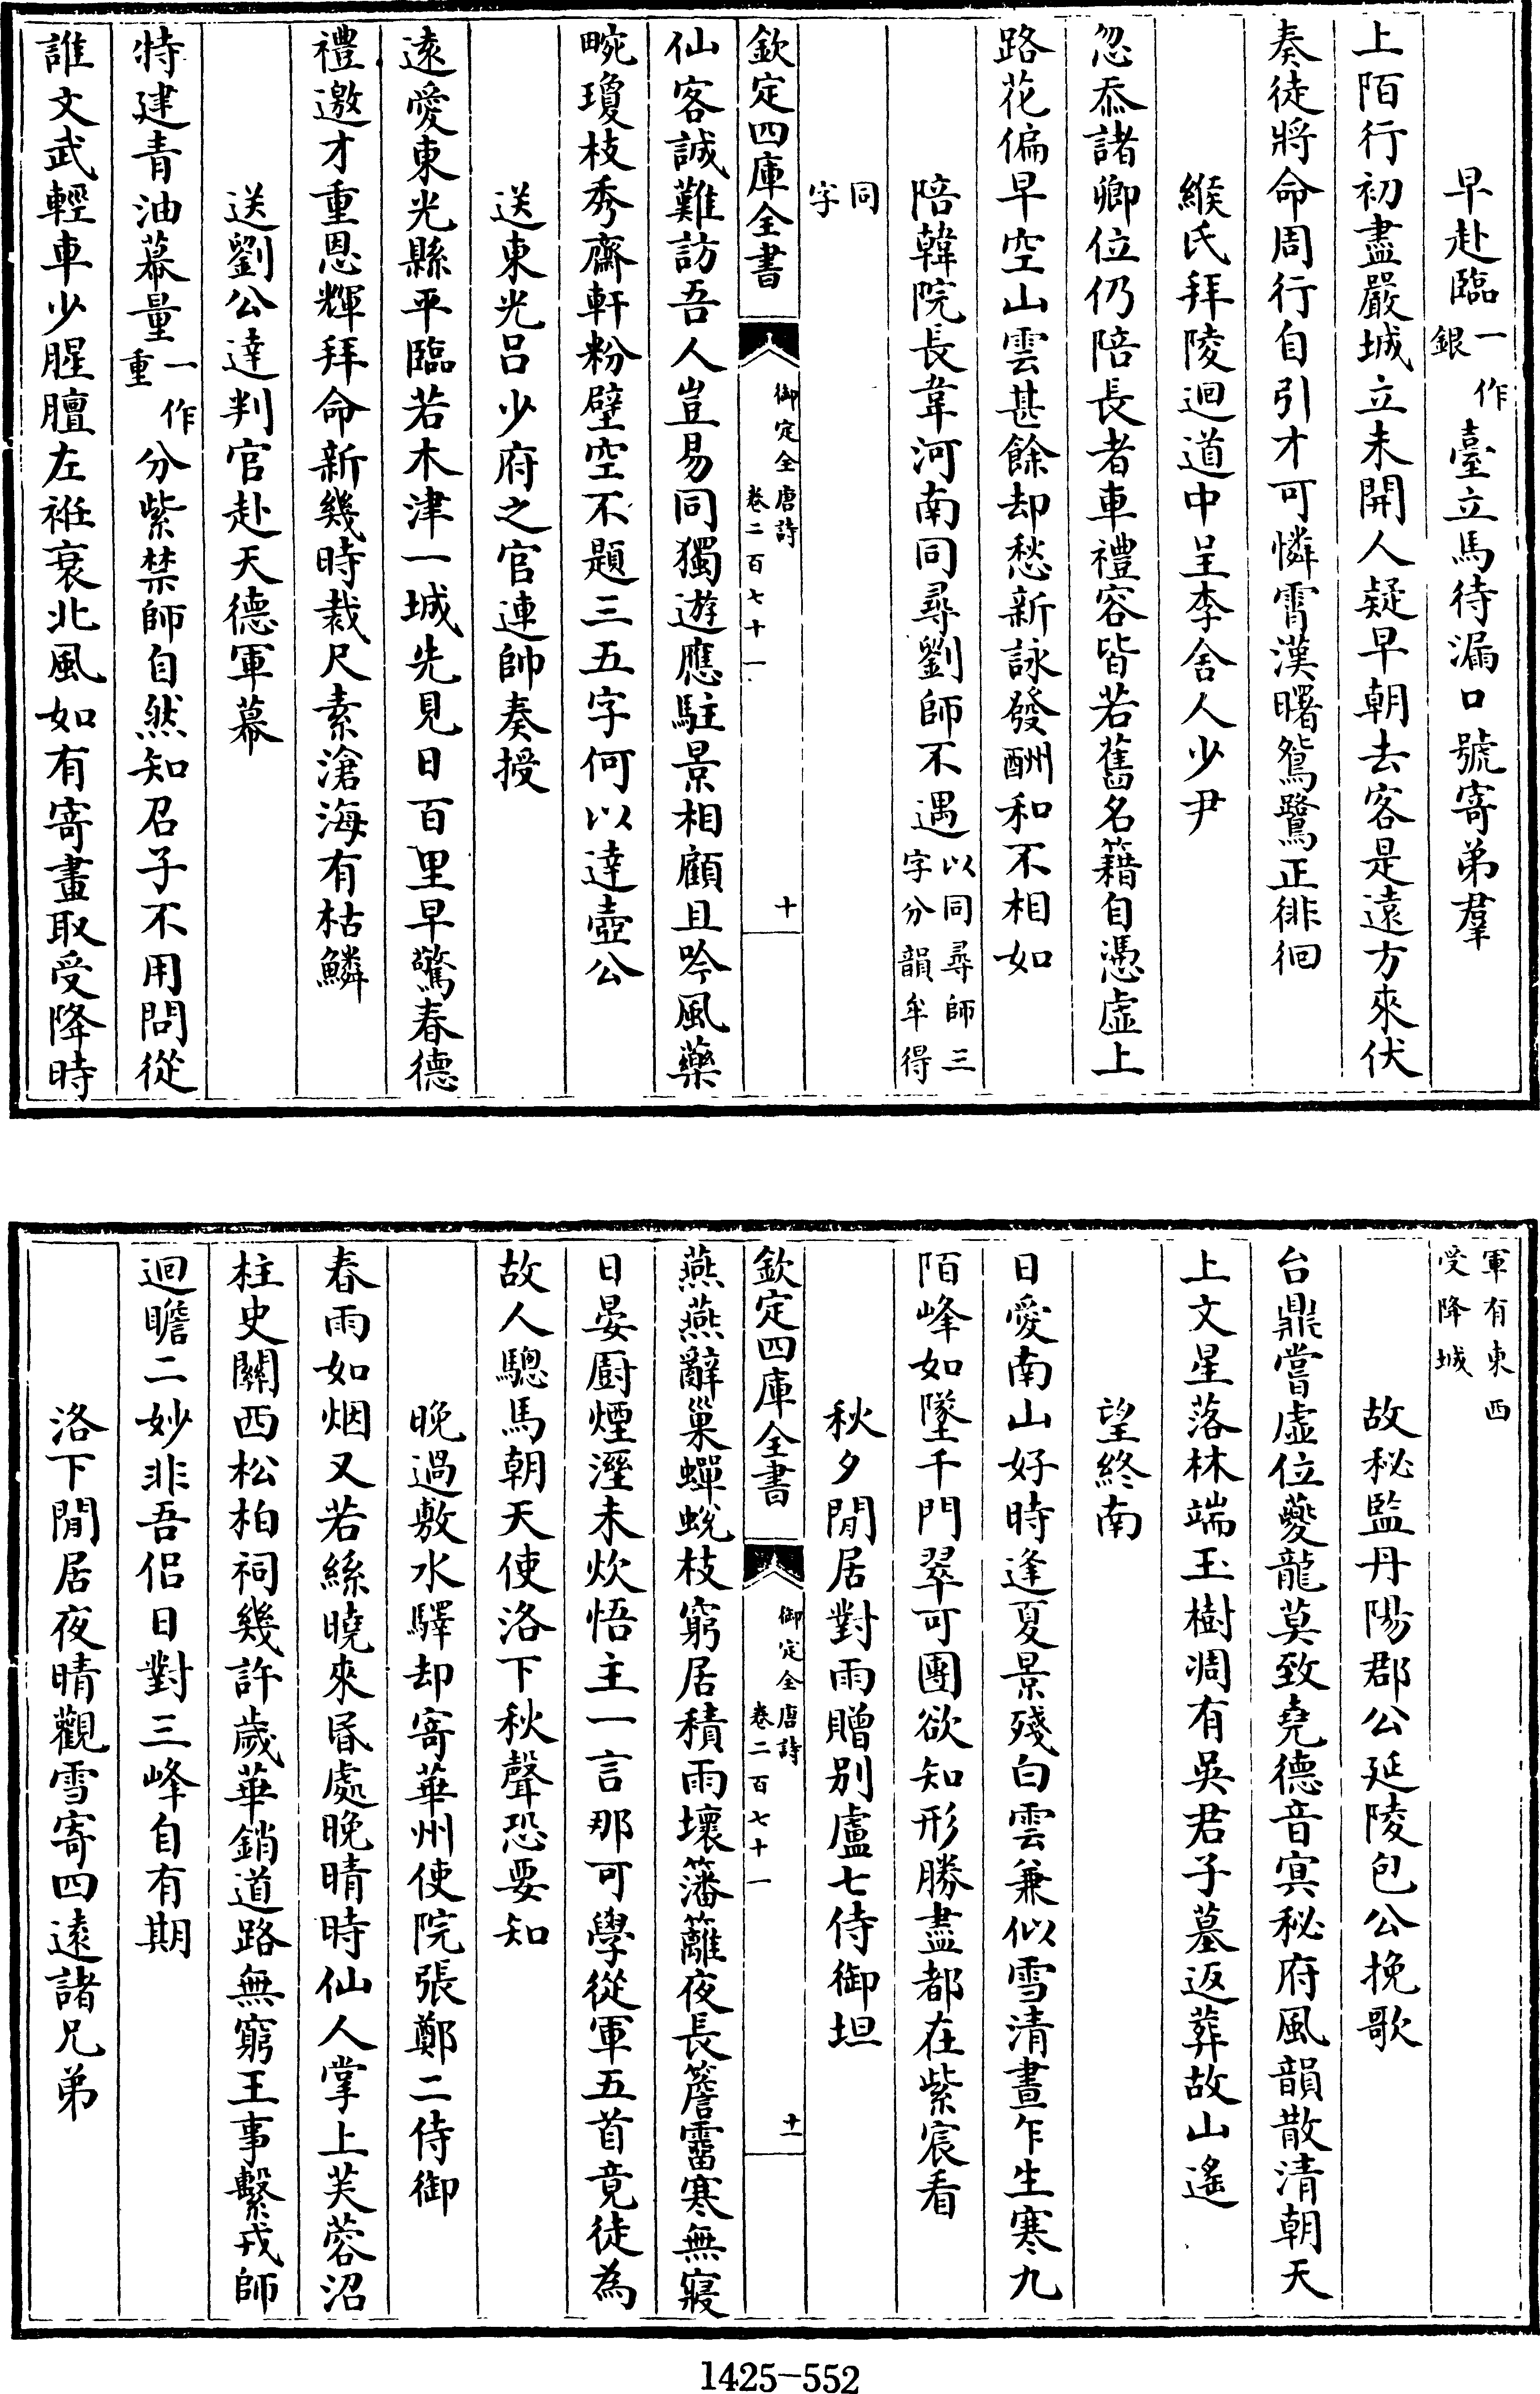 早赴臨一作銀臺立馬待漏口號寄弟羣
上陌行初盡嚴城立未開人疑早朝去客是遠方來伏
奏徒將命周行自引才可憐霄漢曙鴛鷺正徘徊
緱氏拜陵迴道中呈李舍人少尹
忽忝諸卿位仍陪長者車禮容皆若舊名籍自憑虛上
路花偏早空山雲甚餘却愁新詠發酬和不相如
陪韓院長韋河南同尋劉師不遇以同尋師三字分韻牟得
同字
欽定四庫全書 御定全唐詩卷二百七十一 十
仙客誠難訪吾人豈易同獨遊應駐景相顧且吟風藥
畹瓊枝秀齋軒粉壁空不題三五字何以達壺公
送東光呂少府之官連帥奏授
遠愛東光縣平臨若木津一城先見日百里早驚春德
禮邀才重恩輝拜命新幾時裁尺素滄海有枯鱗
送劉公達判官赴天德軍幕
特建青油幕量一作重分紫禁師自然知召子不用問從
誰文武輕車少腥膻左袵衰北風如有寄畫取受降時
軍有東西受降城
故秘監丹陽郡公延陵包公挽歌
台鼎嘗虛位夔龍莫致堯德音冥秘府風韻散清朝天
上文星落林端玉樹凋有吳君子墓返葬故山遙
望終南
日愛南山好時逢夏景殘白雲兼似雪清晝乍生寒九
陌峰如墜千門翠可團欲知形勝盡都在紫宸看
秋夕閒居對雨贈別盧七侍御坦
欽定四庫全書 御定全唐詩卷二百七十一 十一
燕燕辭巢蟬蛻枝窮居積雨壞籓籬夜長簷霤寒無寢
日晏廚煙溼未炊悟主一言那可學從軍五首竟徒為
故人驄馬朝天使洛下秋聲恐要知
晚過敷水驛却寄華州使院張鄭二侍御
春雨如烟又若絲曉來昏處晚晴時仙人掌上芙蓉沼
柱史關西松柏祠幾許歲華銷道路無窮王事繫戎師
迴瞻二妙非吾侣日對三峰自有期
洛下閒居夜晴觀雪寄四遠諸兄弟
1425-552